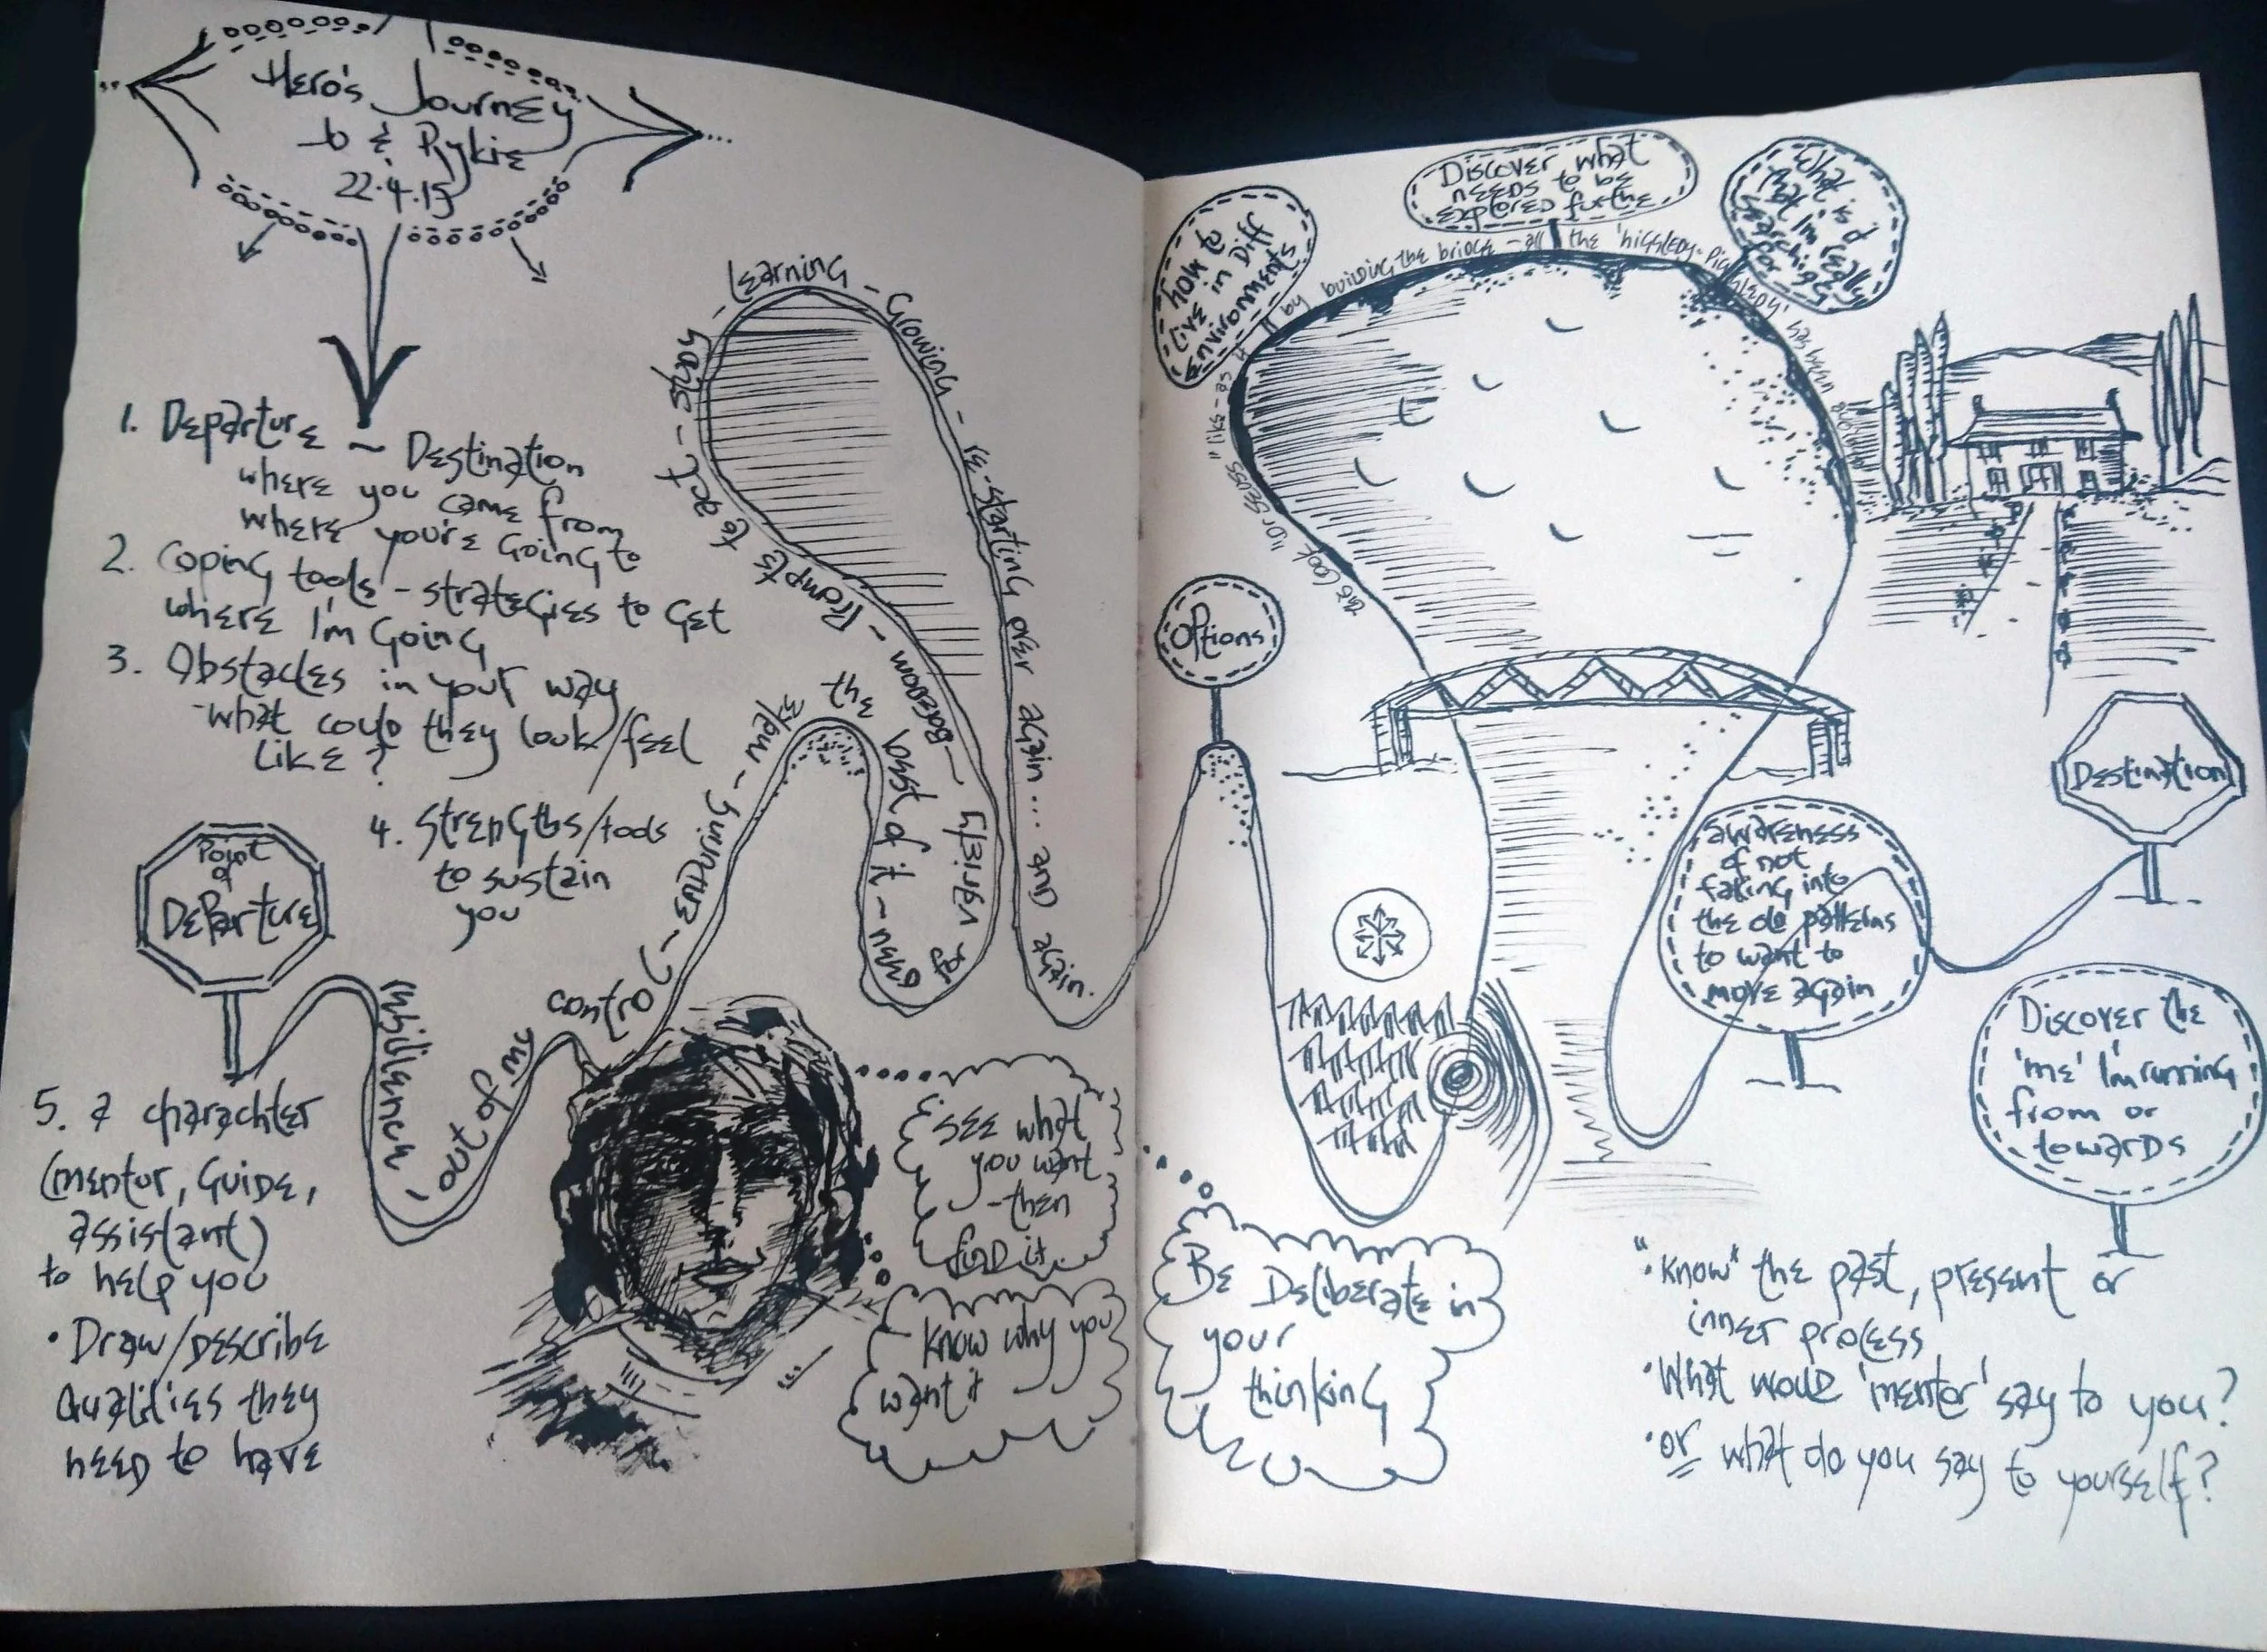 Hero's Journey
b & Rykie
22.4.15
1. Departure ~ Destination
where you came from
where you're Going to
2. Coping tools - strategies to Get
where I'm Going
3. Obstacles in your way
-what could they look/feel
like?
4. Strengths/tools
to sustain
you
Point
of
Departure
5. a charachter
(mentor, Guide,
assistant)
to help you
• Draw/Describe
Qualities they
need to have
resilience - out of my control - enduring - new
the best of it - need for variety - Boredom - Prompts to act - study - Learning - Growing - re-starting over again... and again.
See what
you want
-then
find it
Know why you
want it
Options
How to
live in Diff
environments
Discover what
needs to be
explored furthe
What is it
that I'm really
searching
for
this look "Dr Seuss" like - as if by building the bridge - all the 'higgledy-Piggledy' has been
awareness
of not
falling into
the old patterns
to want to
move again
Destination
Discover the
'me' I'm running
from or
towards
Be Deliberate in
your
thinking
• "Know" the past, present or
inner process
• What would 'mentor' say to you?
• or what do you say to yourself?